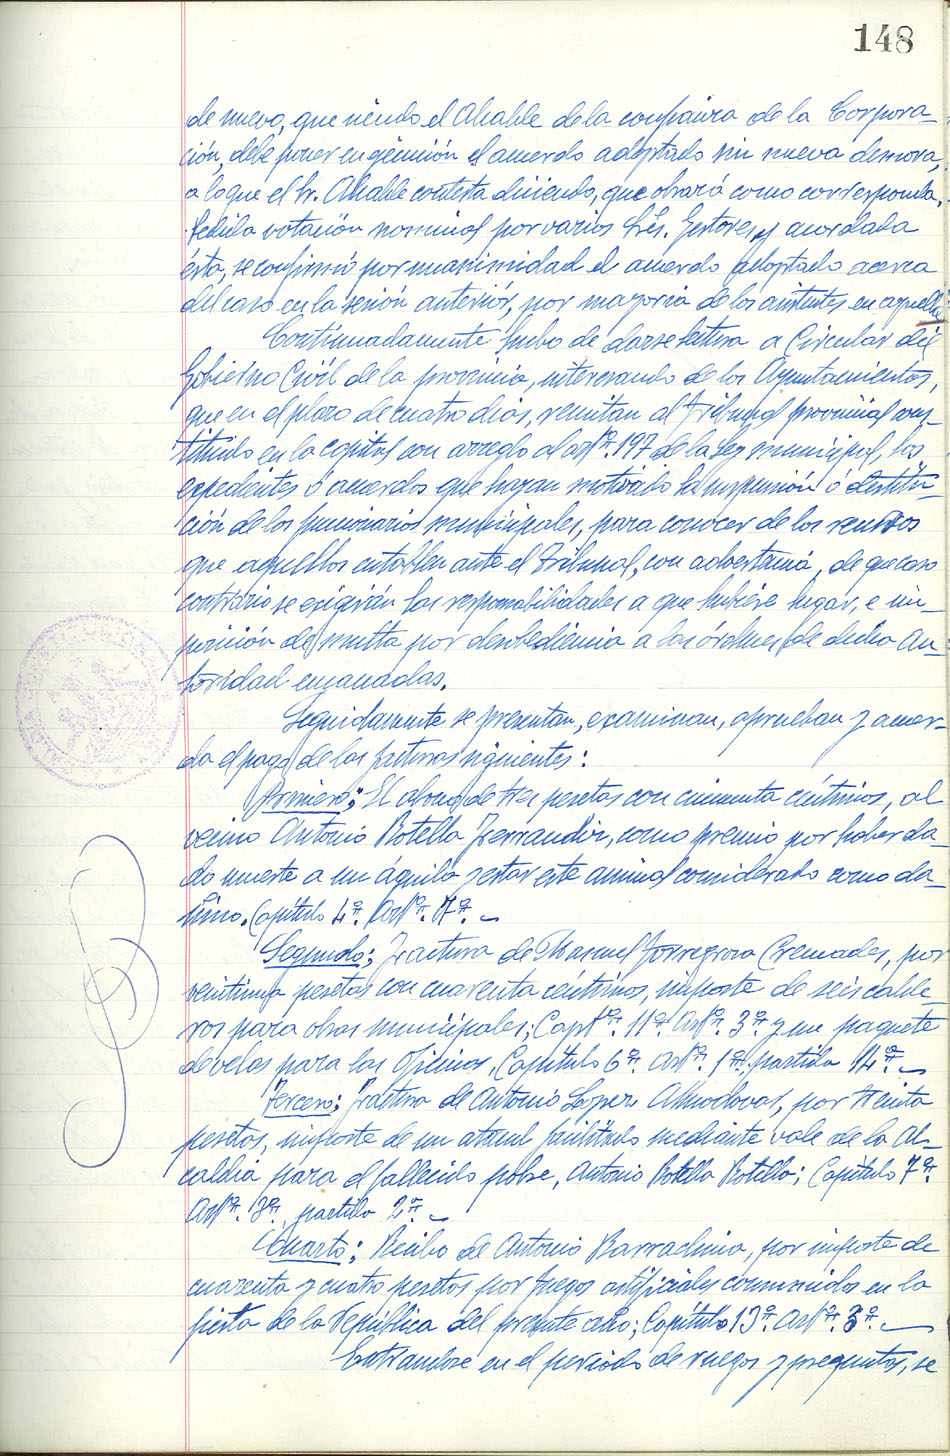 148
de nuevo, que siendo el Alcalde de la confianza de la Corpora-
ción, debe poner en ejecución el acuerdo adoptado sin nueva demora,
a lo que el Sr. Alcalde contesta diciendo, que obrará como corresponda.
Pedida votación nominal por varios Srs. Gestores, y acordada
ésta, se confirmó por unanimidad el acuerdo adoptado acerca
del caso en la sesión anterior, por mayoria de los asistentes en aquella.
Continuadamente hubo de darse lectura a Circular del
Gobierno Civil de la provincia, interesando de los Ayuntamientos,
que en el plazo de cuatro dias, remitan al Tribunal provincial cons-
tituido en la capital con arreglo al artº. 197 de la Ley municipal, los
expedientes ó acuerdos que hayan motivado la suspensión ó destitu-
ción de los funcionarios municipales, para conocer de los recursos
que aquellos entablen ante el Tribunal, con advertencia, de que caso
contrario se exigirán las responsabilidades a que hubiere lugar, e im-
posición de multa por desobediencia a las órdenes de dicha au-
toridad emanadas.
Seguidamente se presentan, examinan, aprueban y acuer-
da el pago de las facturas siguientes:
Primero; El abono de tres pesetas con cincuenta céntimos, al
vecino Antonio Botella Ferrandiz, como premio por haber da-
do muerte a un águila y estar este animal considerado como da-
ñino. Capítulo 4º. Artº. 7º.
Segundo; Factura de Manuel Torregrosa Cremades, por
veintiuna pesetas con cuarenta céntimos, importe de seis calde-
ros para obras municipales; Captº. 11º Artº. 3º y un paquete
de velas para las Oficinas, Capítulo 6º. Artº. 1º. partida 14ª.
Tercero; Factura de Antonio Lopez Almodovar, por treinta
pesetas, importe de un ataud facilitado mediante vale de la Al-
caldia para el fallecido pobre, Antonio Botella Botella; Capítulo 7º.
Artº. 3º. partida 2ª.
Cuarto; Recibo de Antonio Barrachina, por importe de
cuarenta y cuatro pesetas por fuegos artificiales consumidos en la
fiesta de la República del presente año; Capítulo 13º. Artº. 3º.
Entrandose en el periodo de ruegos y preguntas, se